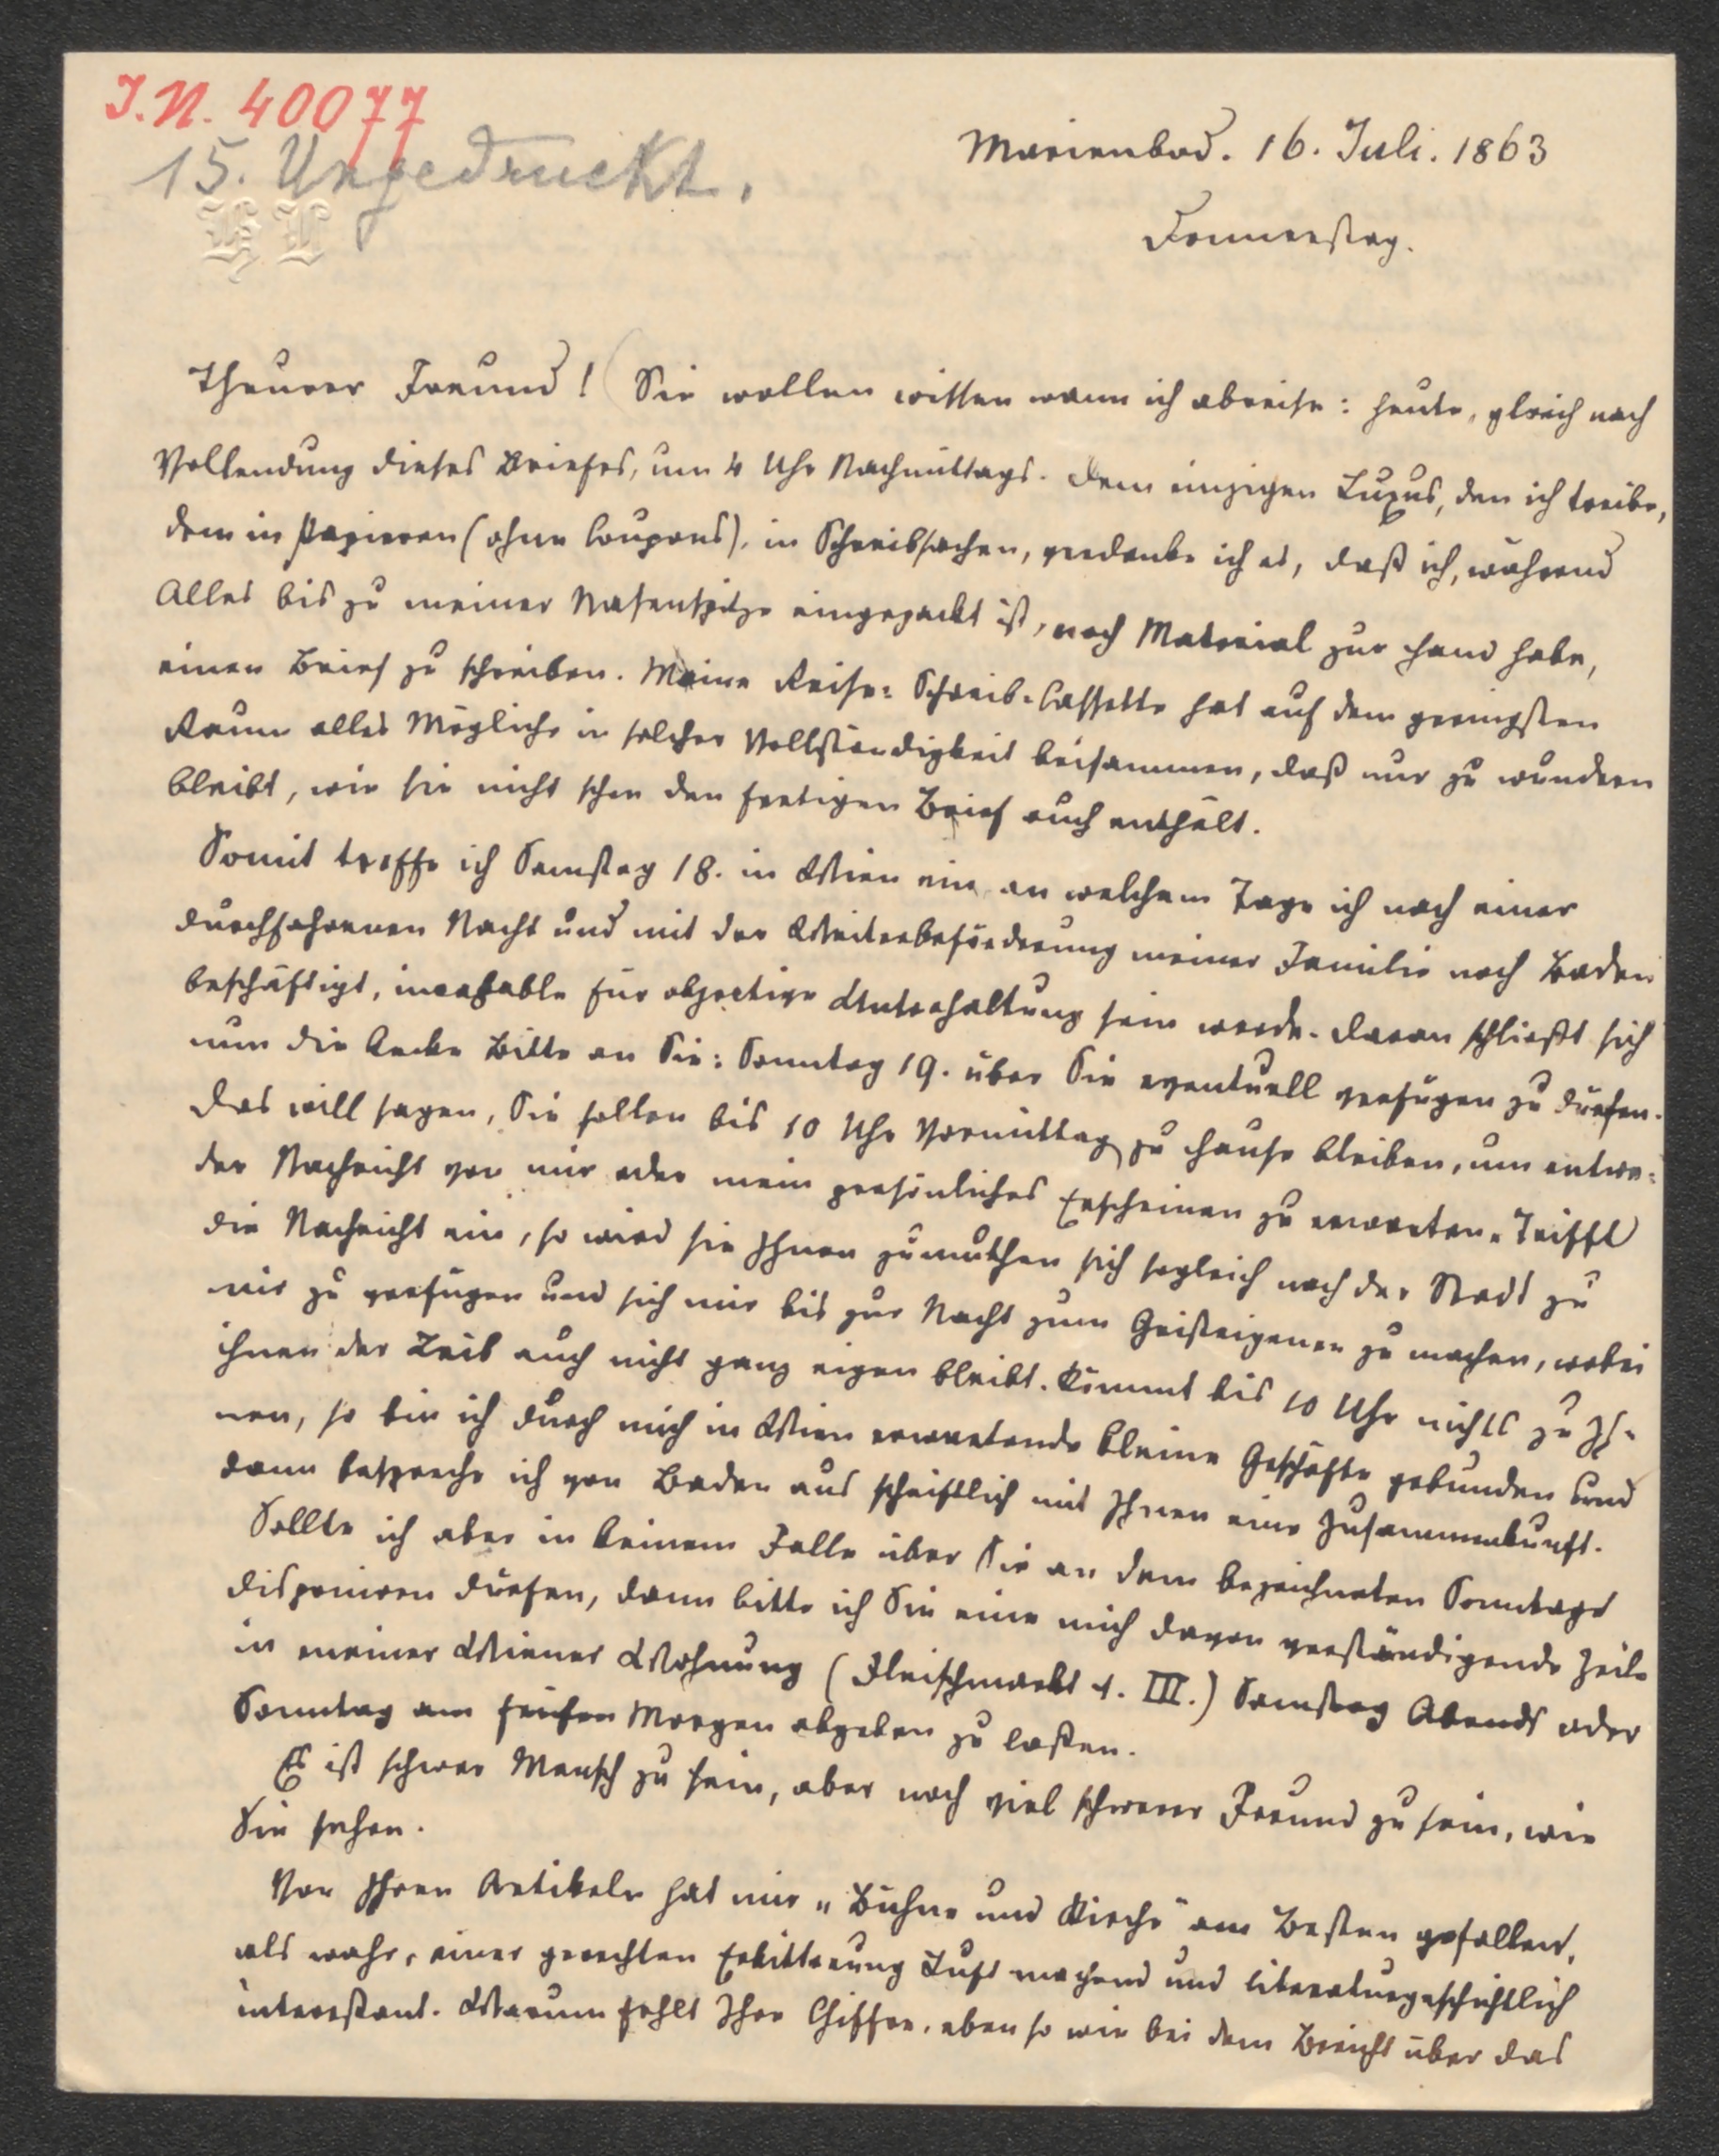 I.N. 40077
15. Ungedruckt.
HL
Marienbad. 16. Juli. 1863
Donnerstag.
Theurer Freund! (Sie wollen wissen wann ich abreise: heute, gleich nach
Vollendung dieses Briefes, um 4 Uhr Nachmittags. Dem einzigen Luxus, den ich treibe,
dem in Papieren (ohne Coupons), in Schreibsachen, verdanke ich es, daß ich, während
Alles bis zu meiner Nasenspitze eingepackt ist, noch Material zur Hand habe,
einen Brief zu schreiben. Meine Reise-Schreib-Cassette hat auf dem geringsten
Raum alles Mögliche in solcher Vollständigkeit beisammen, daß nur zu wundern
bleibt, wie sie nicht schon den fertigen Brief auch enthält.
Somit treffe ich Samstag 18. in Wien ein an welchem Tage ich nach einer
durchfahrenen Nacht und mit der Weiterbeförderung meiner Familie nach Baden
beschäftigt, incapable für objective Unterhaltung sein werde. Daran schließt sich
nun die Bitte an Sie: Sonntag 19. über Sie eventuell verfügen zu dürfen.
Das will sagen, Sie sollen bis 10 Uhr Vormittag zu Hause bleiben, um entwe-
der Nachricht von mir oder mein persönliches Erscheinen zu erwarten. Trifft
die Nachricht ein, so wird sie Ihnen zumuthen sich sogleich nach der Stadt zu
mir zu verfügen und sich mir bis zur Nacht zum Geisteigenen zu machen, wobei
ihnen der Leib auch nicht ganz eigen bleibt. Kommt bis 10 Uhr nichts zu Ih-
nen, so bin ich durch mich in Wien erwartende kleine Geschäfte gebunden und
dann bespreche ich von Baden aus schriftlich mit Ihnen eine Zusammenkunft.
Sollte ich aber in keinem Falle über Sie an dem bezeichneten Sonntage
disponiren dürfen, dann bitte ich Sie eine mich davon verständigende Zeile
in meiner Wiener Wohnung (Fleischmarkt 1. III.) Samstag Abends oder
Sonntag am frühen Morgen abgeben zu lassen.
Es ist schwer Mensch zu sein, aber noch viel schwerer Freund zu sein, wie
Sie sehen.
Von Ihren Artikeln hat mir „Bühne und Kirche" am Besten gefallen,
als wahr, einer gerechten Erbitterung Luft machend und literaturgeschichtlich
interessant. Warum fehlt Ihre Chiffre, eben so wie bei dem Bericht über das